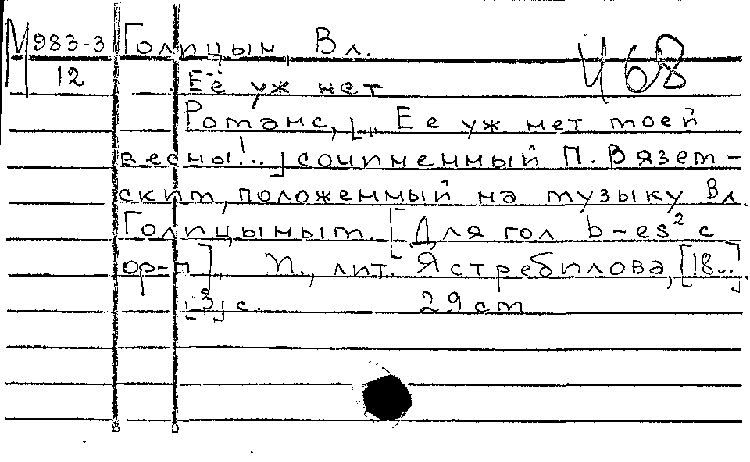 М 983-3 Голицын, Вл. Ч 68
12 Её уж нет
Романс, [„Ее уж нет моей
весны!..] сочиненный П. Вязем-
ским, положенный на музыку Вл.
Голицыным. [Для гол b-es² с
ор-п]. П., лит. Ястребилова, [18..].
[3] с. 29 cm